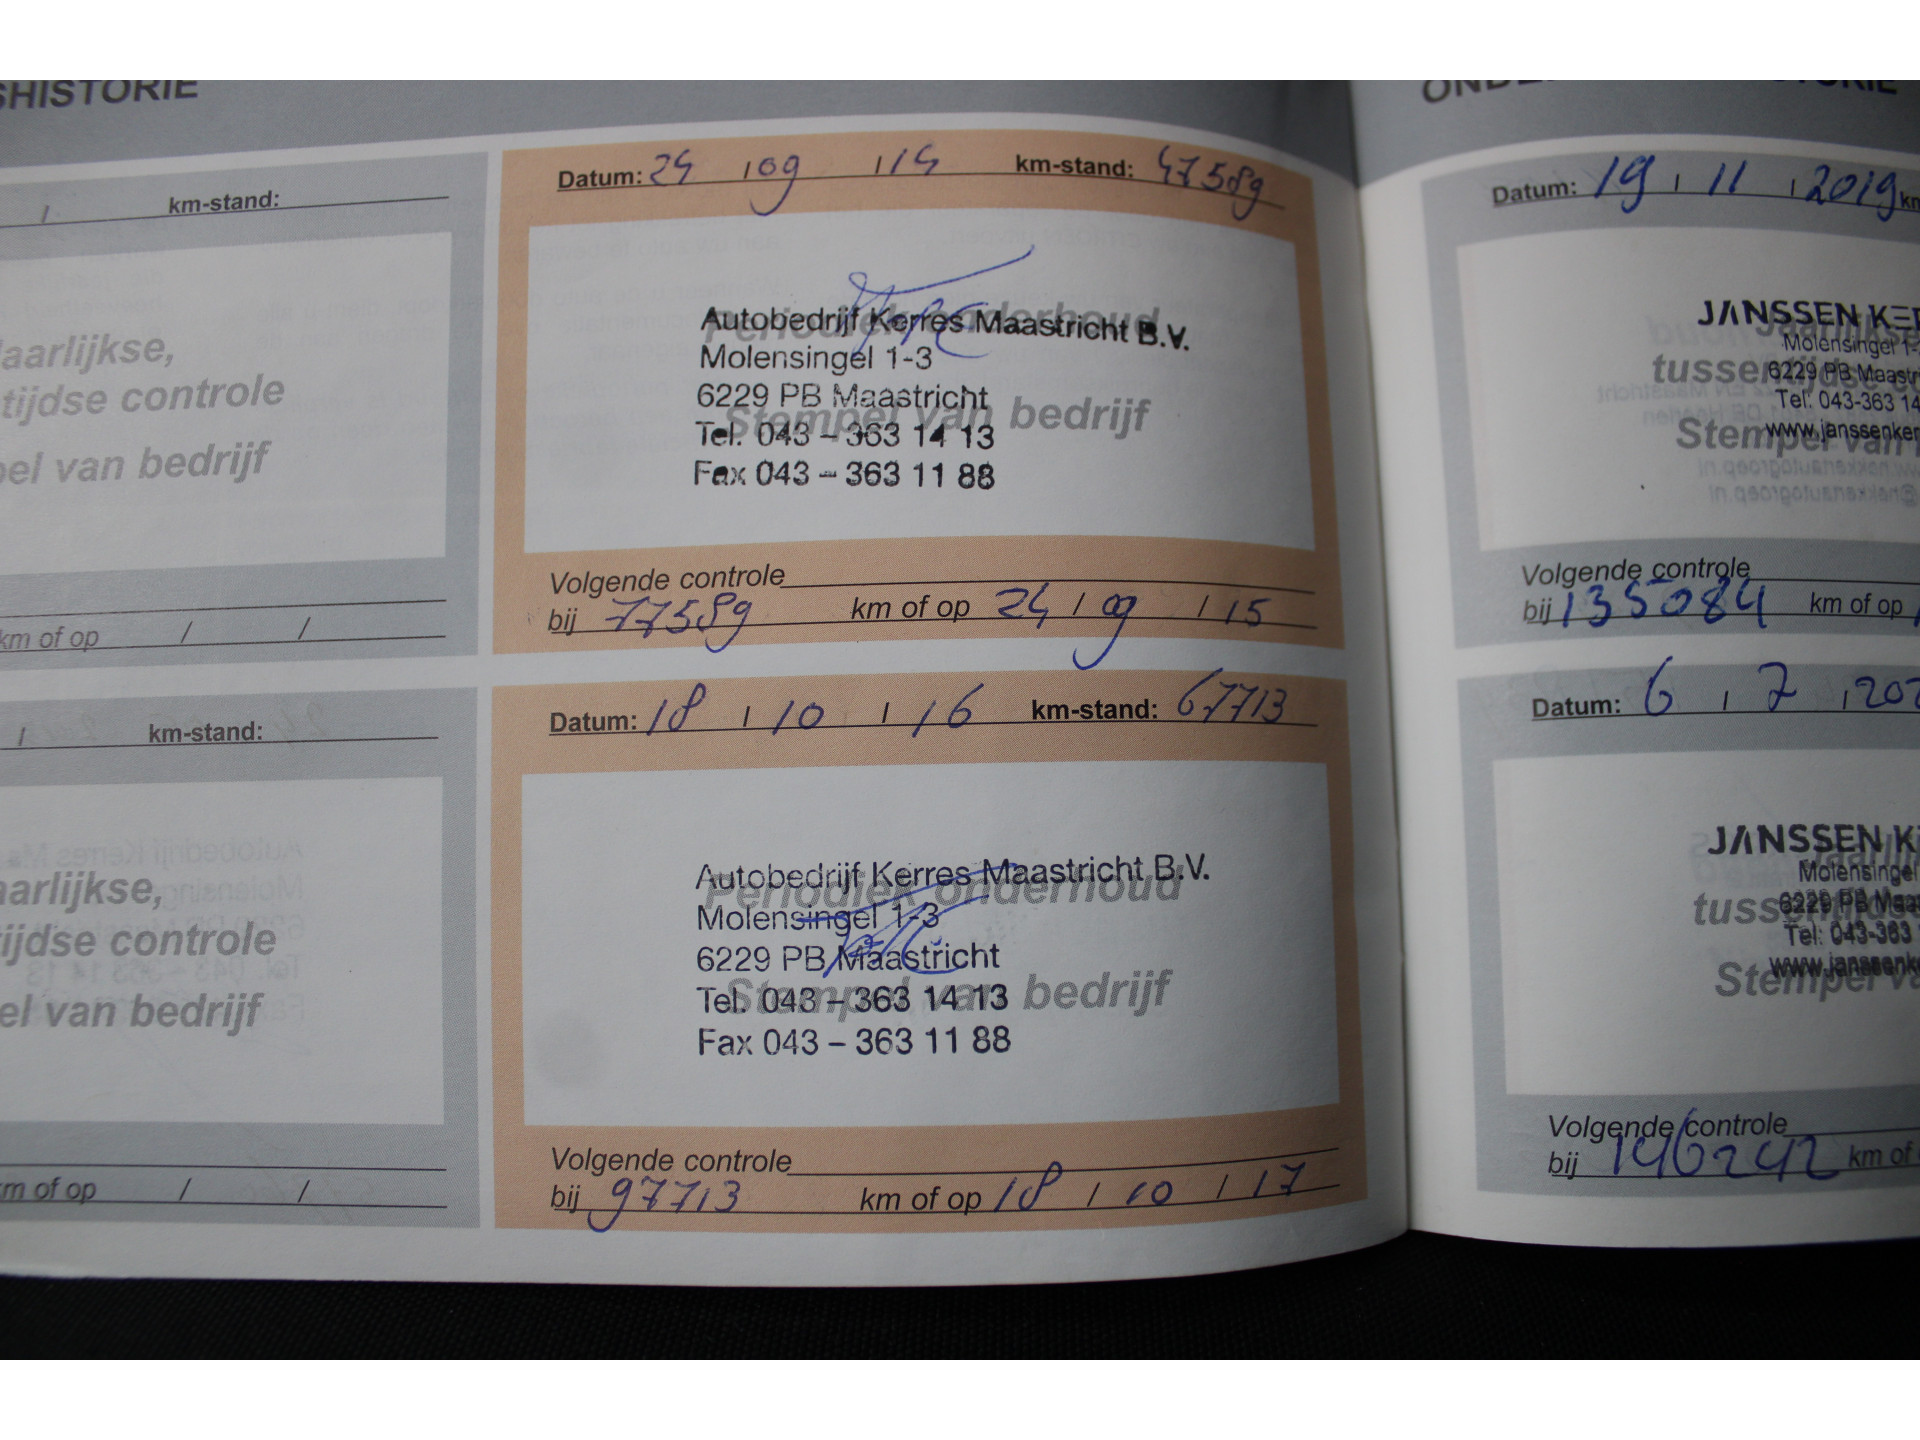 SHISTORIE
/ km-stand:
Jaarlijkse,
tijdse controle
van bedrijf
km of op / /
/ km-stand:
controle
van bedrijf
km of op / /
Datum: 24 / 09 / 14 km-stand: 47589
Periodiek onderhoud
Autobedrijf Kerres Maastricht B.V.
Molensingel 1-3
6229 PB Maastricht
Stempel van bedrijf
Tel. 043 – 363 14 13
Fax 043 – 363 11 88
Volgende controle
bij 77589 km of op 24 / 09 / 15
Datum: 18 / 10 / 16 km-stand: 67713
Autobedrijf Kerres Maastricht B.V.
Periodiek onderhoud
Molensingel 1-3
6229 PB Maastricht
Stempel van bedrijf
Tel. 043 – 363 14 13
Fax 043 – 363 11 88
Volgende controle
bij 97713 km of op 18 / 10 / 17
Datum: 19 / 11 / 2019
JANSSEN
Molensingel
6229 PB
Tel. 043-363 14
Stempel van
Volgende controle
bij 135084 km of op
Datum: 6 / 7 /
JANSSEN
Molensingel
6229 PB
Tel. 043-363
Stempel
Volgende controle
bij 146242 km of